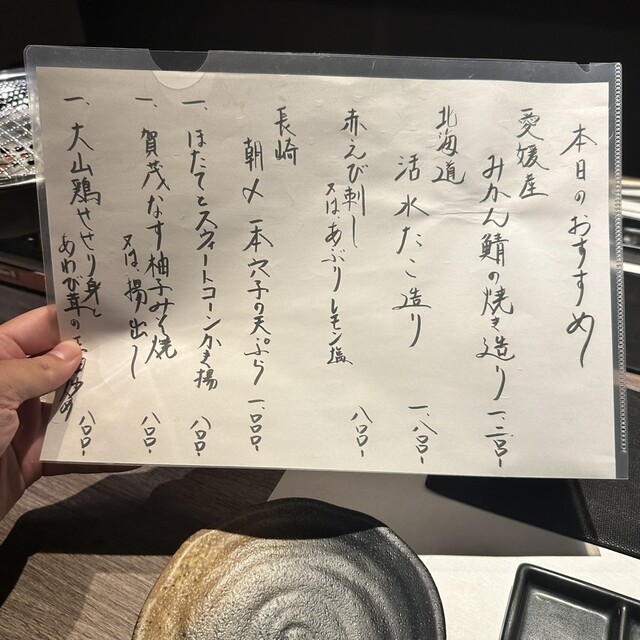 本日のおすすめ
愛媛産
みかん鯖の焼き造り 一、二〇〇-
北海道
活水たこ造り 一、八〇〇-
赤えび刺し
又は、あぶり レモン塩 八〇〇-
長崎
朝〆 一本穴子の天ぷら 一、〇〇〇-
一、ほたてとスウィートコーンかき揚 八〇〇-
一、賀茂なす柚子みそ焼
又は、揚出し 八〇〇-
一、大山鶏せせり身と
あわび茸の 八〇〇-